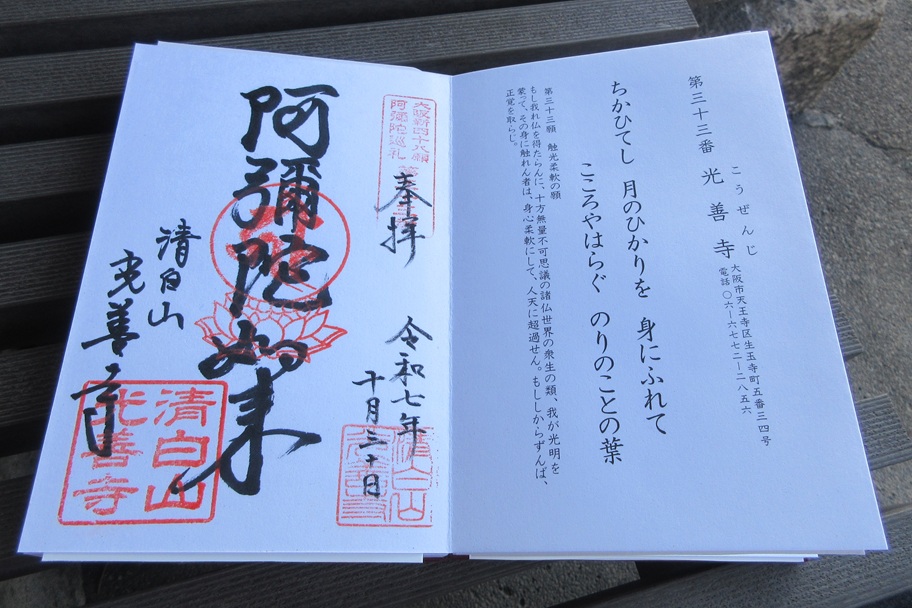 第三十三番 光善寺
こうぜんじ
大阪市天王寺区生玉寺町五番三四号
電話〇六―六七七二―二八五六
ちかひてし 月のひかりを 身にふれて
こころやはらぐ のりのことの葉
第三十三願 触光柔軟の願
もし我れ仏を得たらんに、十方無量不可思議の諸仏世界の衆生の類、我が光明を
蒙って、その身に触れん者は、身心柔軟にして、人天に超過せん。もししからずんば、
正覚を取らじ。
大阪新四十八願
阿弥陀巡礼
奉拝
令和七年
十月三十日
阿彌陀如来
清白山
光善寺
清白山
光善寺